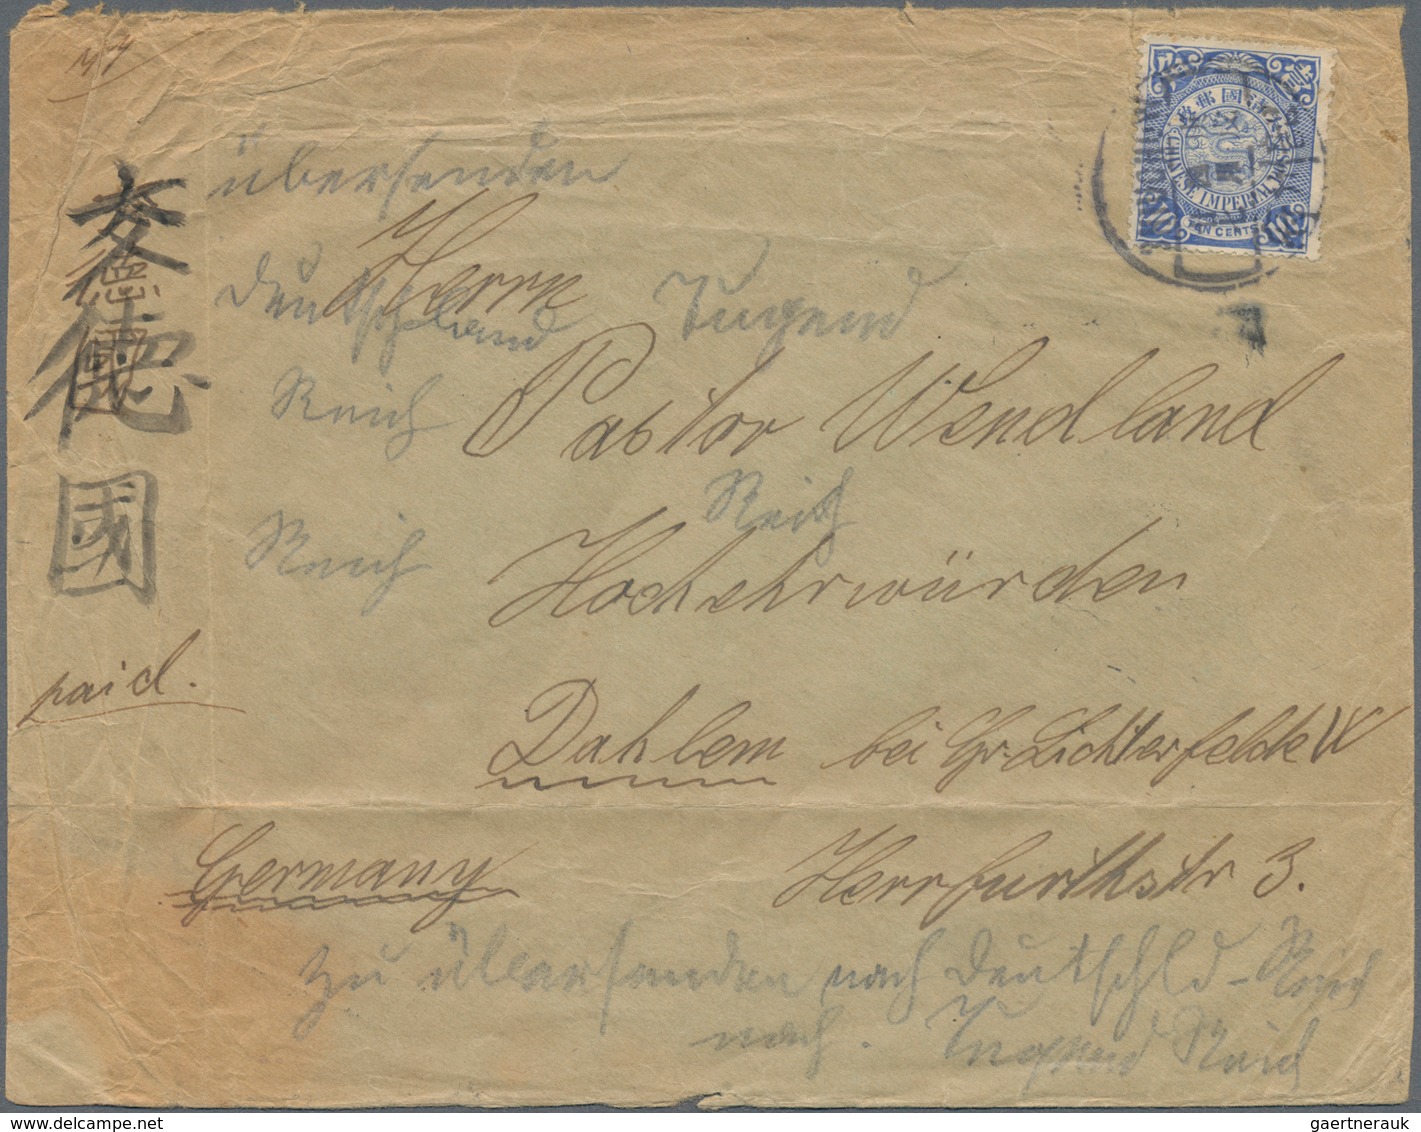 übersenden
Herrn
Deutschland Tugend
Reich Pastor Wendland
Reich Reich
Hochehrwürden
Dahlem bei Gr. Lichterfelde W
Germany Herrfurthstr 3.
zu übersenden nach Deutschld - Reich
nach. Tugend Reich
交德國
德國
paid.
大清國郵政
CHINESE IMPERIAL POST
10 TEN CENTS 10
gaertnerauk